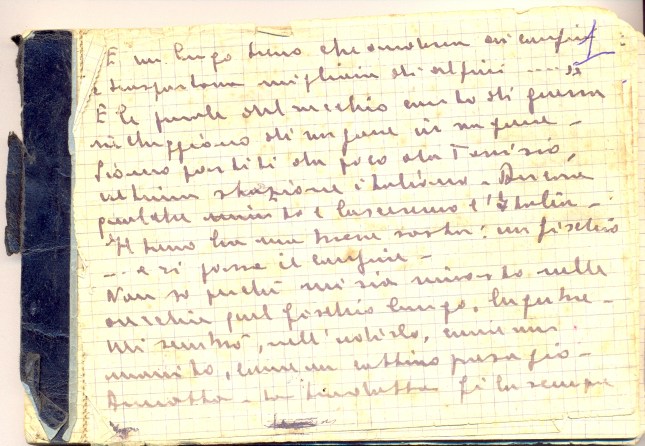 È un lungo treno che andava ai confini
e trasportava migliaia di alpini ....
E le parole del vecchio canto di guerra
riecheggiano di vagone in vagone -
Siamo partiti da poco da Tarvisio,
ultima stazione italiana. Ancora
qualche minuto e lasceremo l'Italia -
Il treno ha una breve sosta: un fischio
... e si passa il confine -
Non so perché mi sia rimasto nelle
orecchie quel fischio lungo, lugubre -
Mi sembrò, nell'udirlo, come un
monito, come un cattivo presagio -
Annotta - la tradotta fila sempre